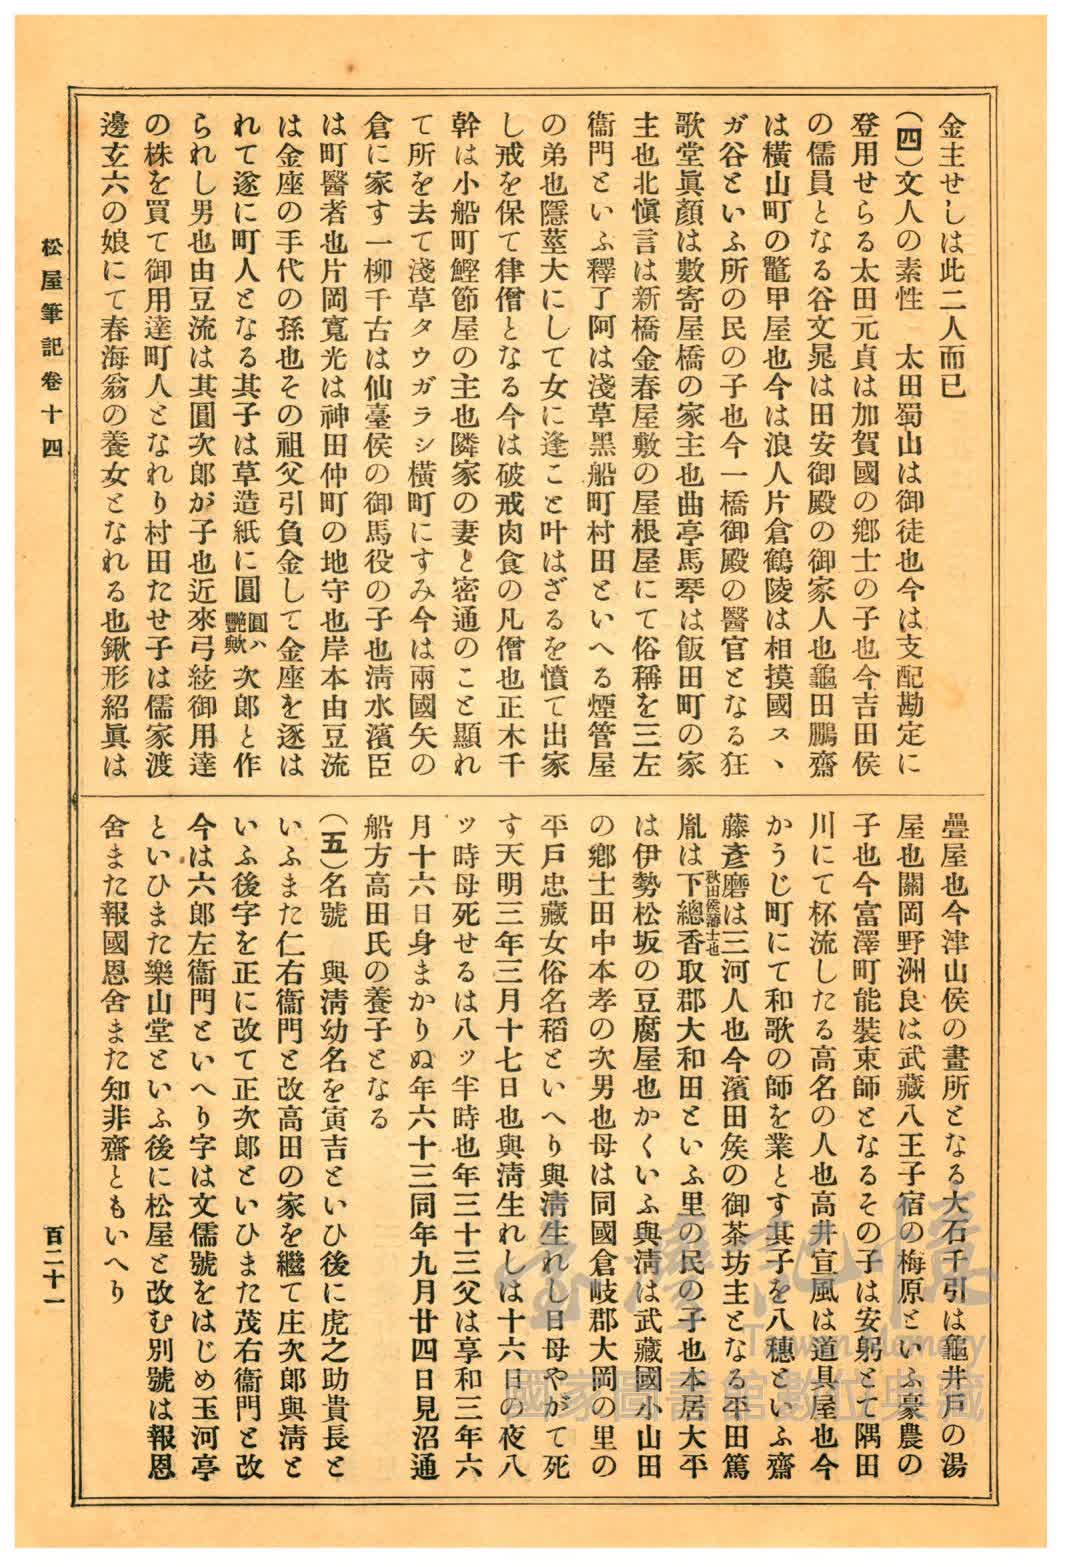 金主せしは此二人而已
(四)文人の素性　太田蜀山は御徒也今は支配勘定に
登用せらる太田元貞は加賀國の鄕士の子也今吉田侯
の儒員となる谷文晁は田安御殿の御家人也龜田鵬齋
は橫山町の鼈甲屋也今は浪人片倉鶴陵は相摸國スヽ
ガ谷といふ所の民の子也今一橋御殿の醫官となる狂
歌堂眞顏は數寄屋橋の家主也曲亭馬琴は飯田町の家
主也北愼言は新橋金春屋敷の屋根屋にて俗稱を三左
衞門といふ釋了阿は淺草黑船町村田といへる煙管屋
の弟也隱莖大にして女に逢こと叶はざるを憤て出家
し戒を保て律僧となる今は破戒肉食の凡僧也正木千
幹は小船町鰹節屋の主也隣家の妻と密通のこと顯れ
て所を去て淺草タウガラシ橫町にすみ今は兩國矢の
倉に家す一柳千古は仙臺侯の御馬役の子也淸水濱臣
は町醫者也片岡寬光は神田仲町の地守也岸本由豆流
は金座の手代の孫也その祖父引負金して金座を逐は
れて遂に町人となる其子は草造紙に圓圓ハ艷歟次郎と作
られし男也由豆流は其圓次郎が子也近來弓絃御用達
の株を買て御用達町人となれり村田たせ子は儒家渡
邊玄六の娘にて春海翁の養女となれる也鍬形紹眞は
疊屋也今津山侯の畫所となる大石千引は龜井戶の湯
屋也關岡野洲良は武藏八王子宿の梅原といふ豪農の
子也今富澤町能裝束師となるその子は安躬とて隅田
川にて杯流したる高名の人也高井宣風は道具屋也今
かうじ町にて和歌の師を業とす其子を八穗といふ齋
藤彥麿は三河人也今濱田矦の御茶坊主となる平田篤
胤は下總秋田侯藩士也香取郡大和田といふ里の民の子也本居大平
は伊勢松坂の豆腐屋也かくいふ與淸は武藏國小山田
の鄕士田中本孝の次男也母は同國倉岐郡大岡の里の
平戶忠藏女俗名稻といへり與淸生れし日母やがて死
す天明三年三月十七日也與淸生れしは十六日の夜八
ッ時母死せるは八ッ半時也年三十三父は享和三年六
月十六日身まかりぬ年六十三同年九月廿四日見沼通
船方高田氏の養子となる
(五)名號　與淸幼名を寅吉といひ後に虎之助貴長と
いふまた仁右衞門と改高田の家を繼て庄次郎與淸と
いふ後字を正に改て正次郎といひまた茂右衞門と改
今は六郎左衞門といへり字は文儒號をはじめ玉河亭
といひまた樂山堂といふ後に松屋と改む別號は報恩
舍また報國恩舍また知非齋ともいへり
松屋筆記卷十四
百二十一
臺灣記憶
Taiwan Memory
國家圖書館數位典藏